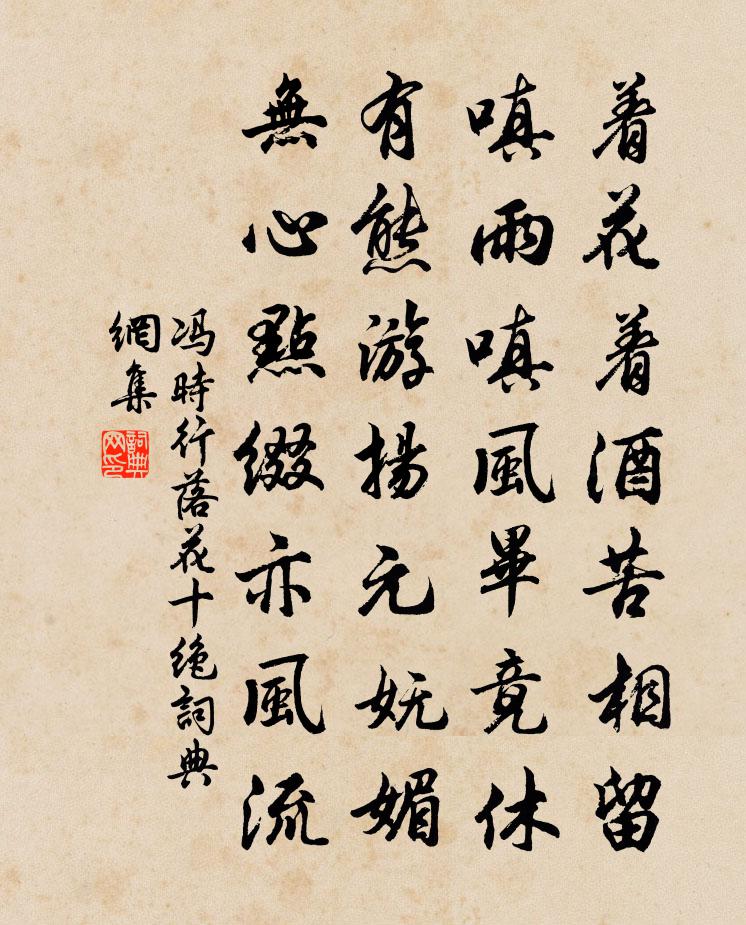 着花着酒苦相留
嗔雨嗔風畢竟休
有態游揚元妩媚
無心點綴亦風流
冯時行落花十绝詞典
網集
詞典网印